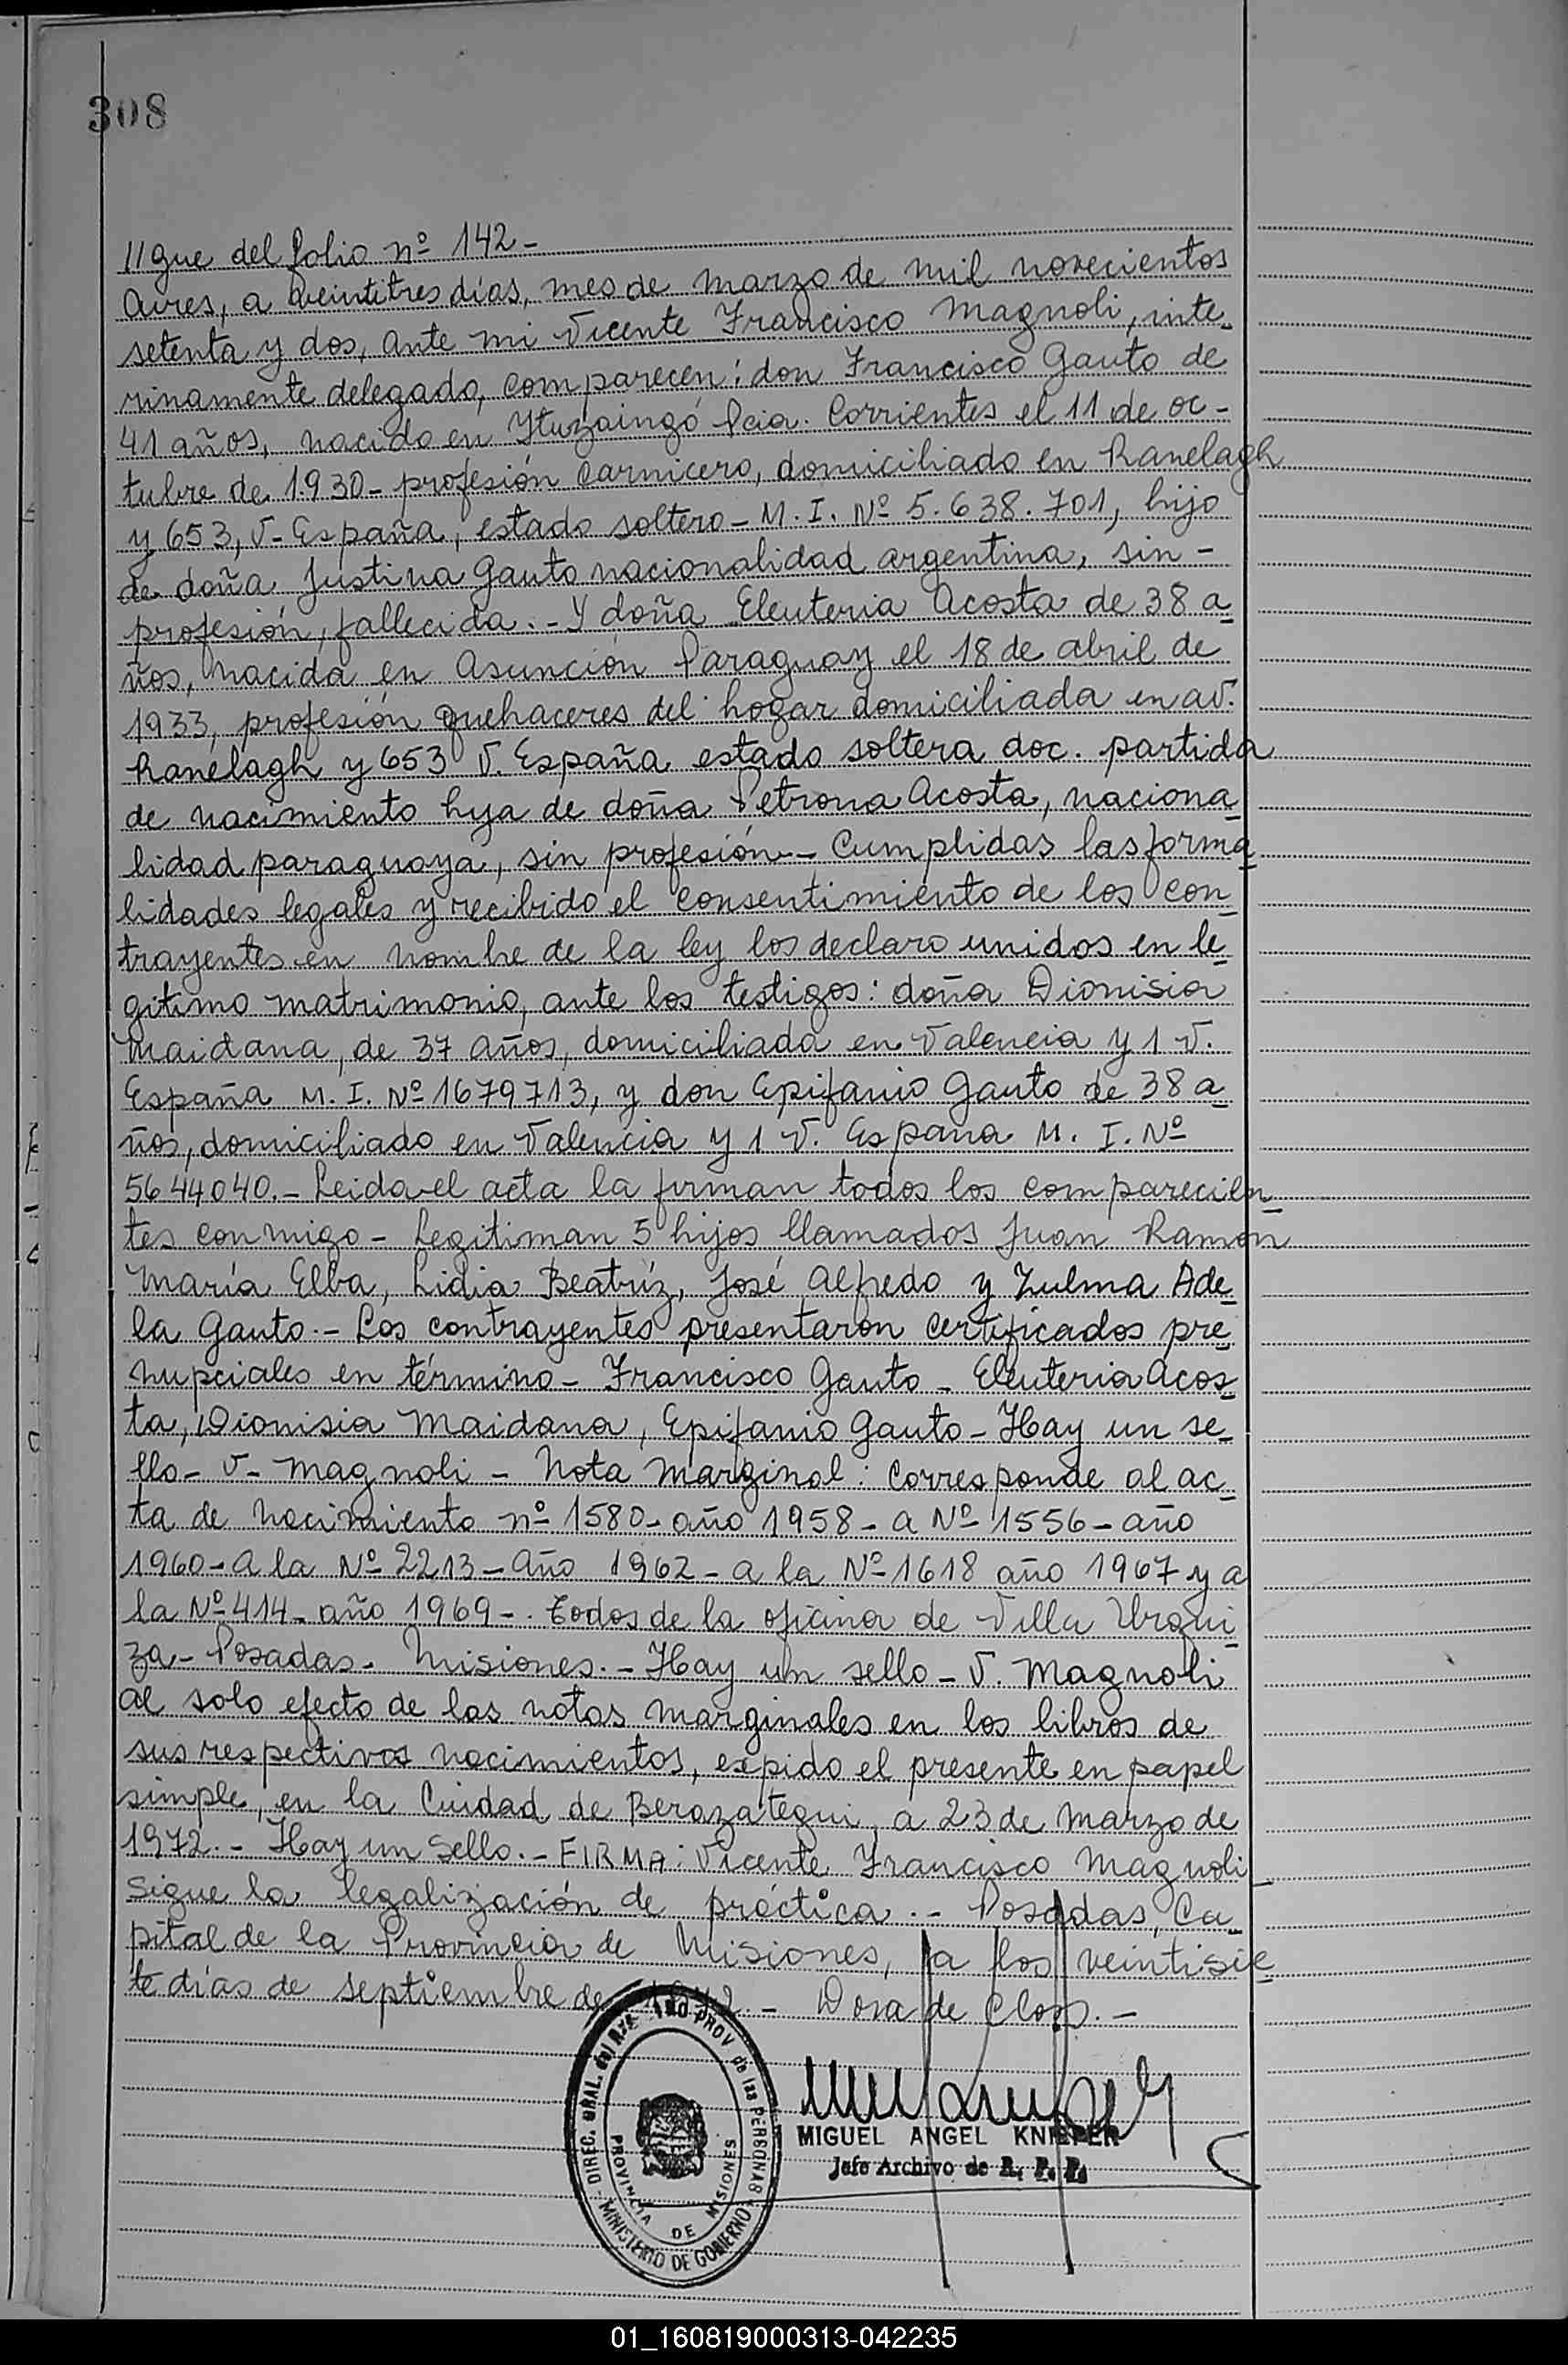 308
//gue del folio nº 142-
Aires, a veintitres días, mes de marzo de mil novecientos
setenta y dos, ante mi Vicente Francisco Magnoli, inte-
rinamente delegado, comparecen: don Francisco Gauto de
41 años, nacido en Ituzaingó Pcia. Corrientes el 11 de oc-
tubre de 1930- profesión carnicero, domiciliado en Ranelagh
y 653, V- España, estado soltero- M. I. Nº 5.638.701, hijo
de doña Justina Gauto nacionalidad argentina, sin-
profesión, fallecida.- Y doña Eleuteria Acosta de 38 a-
ños, nacida en Asunción Paraguay el 18 de abril de
1933, profesión quehaceres del hogar domiciliada en av.
Ranelagh y 653 V. España estado soltera doc. partida
de nacimiento hija de doña Petrona Acosta, naciona-
lidad paraguaya, sin profesión.- Cumplidas las forma-
lidades legales y recibido el consentimiento de los con-
trayentes en nombre de la ley los declaro unidos en le-
gitimo matrimonio, ante los testigos: doña Dionisia
Maidana, de 37 años, domiciliada en Valencia y 1 V.
España M. I. Nº 1679713, y don Epifanio Gauto de 38 a-
ños, domiciliado en Valencia y 1 V. España M. I. Nº
5644040.- Leida el acta la firman todos los comparecien-
tes conmigo- Legitiman 5 hijos llamados Juan Ramon
María Elba, Lidia Beatríz, José Alfredo y Zulma Ade-
la Gauto.- Los contrayentes presentaron certificados pre-
nupciales en término- Francisco Gauto- Eleuteria Acos-
ta, Dionisia Maidana, Epifanio Gauto- Hay un se-
llo- V- Magnoli- Nota Marginal: Corresponde al ac-
ta de nacimiento nº 1580- año 1958- a Nº 1556- año
1960- a la Nº 2213- Año 1962- a la Nº 1618 año 1967 y a
la Nº 414- año 1969-. Todos de la oficina de Villa Urqui-
za- Posadas- Misiones.- Hay un sello- V. Magnoli
al solo efecto de las notas marginales en los libros de
sus respectivos nacimientos, expido el presente en papel
simple, en la Ciudad de Berazategui, a 23 de Marzo de
1972.- Hay un sello.- FIRMA: Vicente Francisco Magnoli
Sigue la legalización de práctica.- Posadas, Ca-
pital de la Provincia de Misiones, a los veintisie-
te días de septiembre de 1972.- Dora de Closs.-
DIREC. GRAL. del PROV. de las PERSONAS
PROVINCIA DE MISIONES
MINISTERIO DE GOBIERNO
MIGUEL ANGEL KNIEPER
Jefe Archivo de R. P. P.
01_160819000313-042235